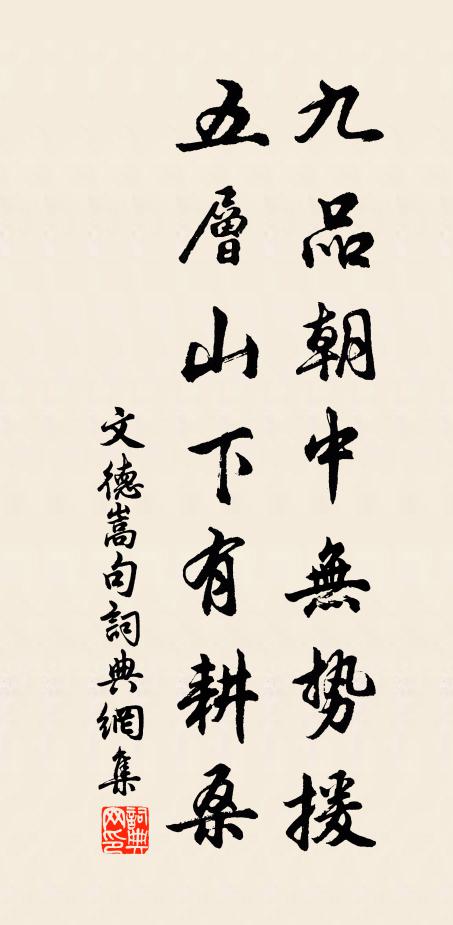 九品朝中無势援
五層山下有耕桑
文德嵩句詞典網集
詞典网印